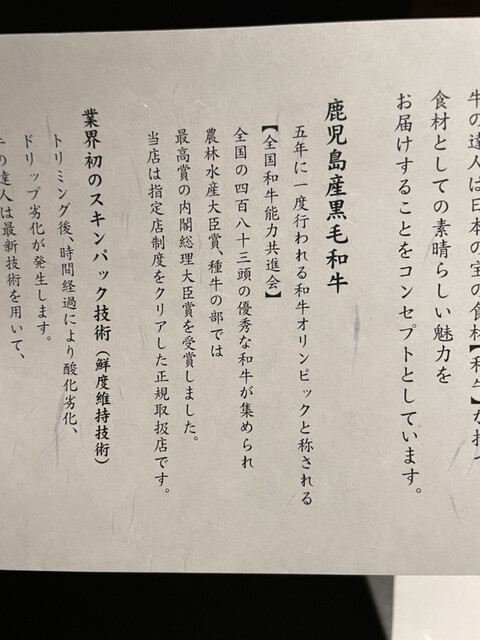 牛の達人は日本の宝の食材【和牛】が持つ
食材としての素晴らしい魅力を
お届けすることをコンセプトとしています。
鹿児島産黒毛和牛
五年に一度行われる和牛オリンピックと称される
【全国和牛能力共進会】
全国の四百八十三頭の優秀な和牛が集められ
農林水産大臣賞、種牛の部では
最高賞の内閣総理大臣賞を受賞しました。
当店は指定店制度をクリアした正規取扱店です。
業界初のスキンパック技術（鮮度維持技術）
トリミング後、時間経過により酸化劣化、
ドリップ劣化が発生します。
牛の達人は最新技術を用いて、